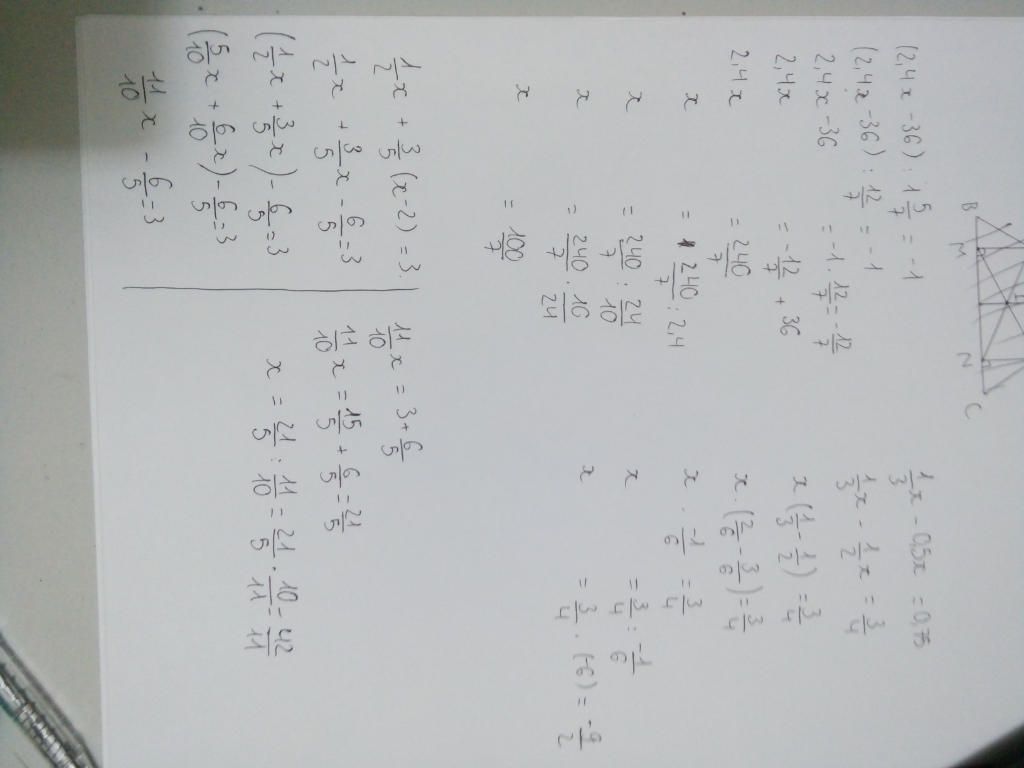 B M N C
(2,4x - 36) : 1 5/7 = -1
(2,4x - 36) : 12/7 = -1
2,4x - 36 = -1 · 12/7 = -12/7
2,4x = -12/7 + 36
2,4x = 240/7
x = 240/7 : 2,4
x = 240/7 : 24/10
x = 240/7 · 10/24
x = 100/7
1/3 x - 0,5x = 0,75
1/3 x - 1/2 x = 3/4
x (1/3 - 1/2) = 3/4
x · (2/6 - 3/6) = 3/4
x · -1/6 = 3/4
x = 3/4 : -1/6
x = 3/4 · (-6) = -9/2
1/2 x + 3/5 (x-2) = 3.
1/2 x + 3/5 x - 6/5 = 3
(1/2 x + 3/5 x) - 6/5 = 3
(5/10 x + 6/10 x) - 6/5 = 3
11/10 x - 6/5 = 3
11/10 x = 3 + 6/5
11/10 x = 15/5 + 6/5 = 21/5
x = 21/5 : 11/10 = 21/5 · 10/11 = 42/11